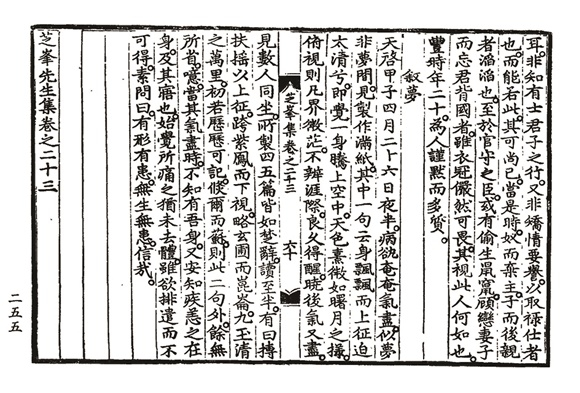 耳非知有士君子之行又非矯情要譽以取祿仕者
也而能若此其可尚已當是時奴而棄主子而後親
者滔滔也至於官守之臣或有偷生鼠竄顧戀妻子
而忘君背國者雖衣冠儼然可畏其視此人何如也
豐時年二十爲人謹默而多質
敘夢
天啓甲子四月二十六日夜半病欲奄奄氣盡似夢
非夢間見製作滿紙其中一句云身飄飄而上征迫
太清兮即覺一身騰上空中天色熹微如曙月之
俯視則凡界微茫不辨涯際良久得醒曉後氣又盡
芝峯集卷之二十三 六十
見數人同坐所製四五篇皆如楚辭讀至半有曰摶
扶搖以上征跨紫鳳而下視略玄圃而崑崙九玉清
之萬里初若歷歷可記倏爾而蘇則此二句外餘無
所省噫當其氣盡時不知有吾身又安知疾恙之在
身及其寤也始覺所痛之猶未去體雖欲排遣而不
可得素問曰有形有患無生無患信哉
芝峯先生集卷之二十三
二五五